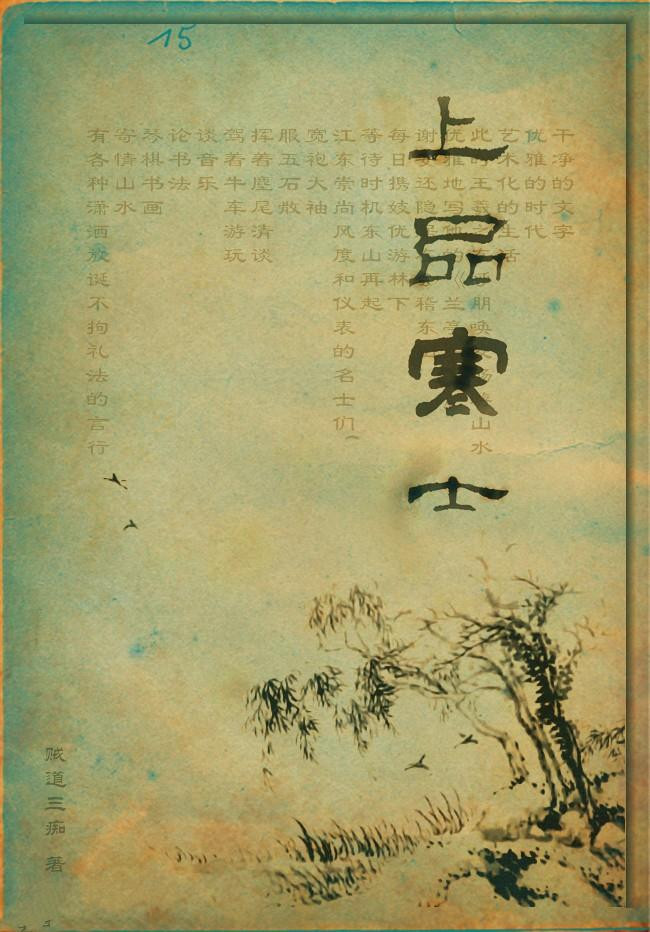 15
上品寒士
干净的文字
优雅的时代
艺术化的生活
此时王羲之朋唤山水
优雅地写他的《兰亭
谢安还隐稽东
每日携妓优游林下
等待时机东山再起
江东崇尚风度和仪表的名士们，
宽袍大袖
服五石散
挥着麈尾清谈
驾着牛车游玩
谈音乐
论书法
琴棋书画
寄情山水
有各种潇洒放诞不拘礼法的言行
贼道三痴 著